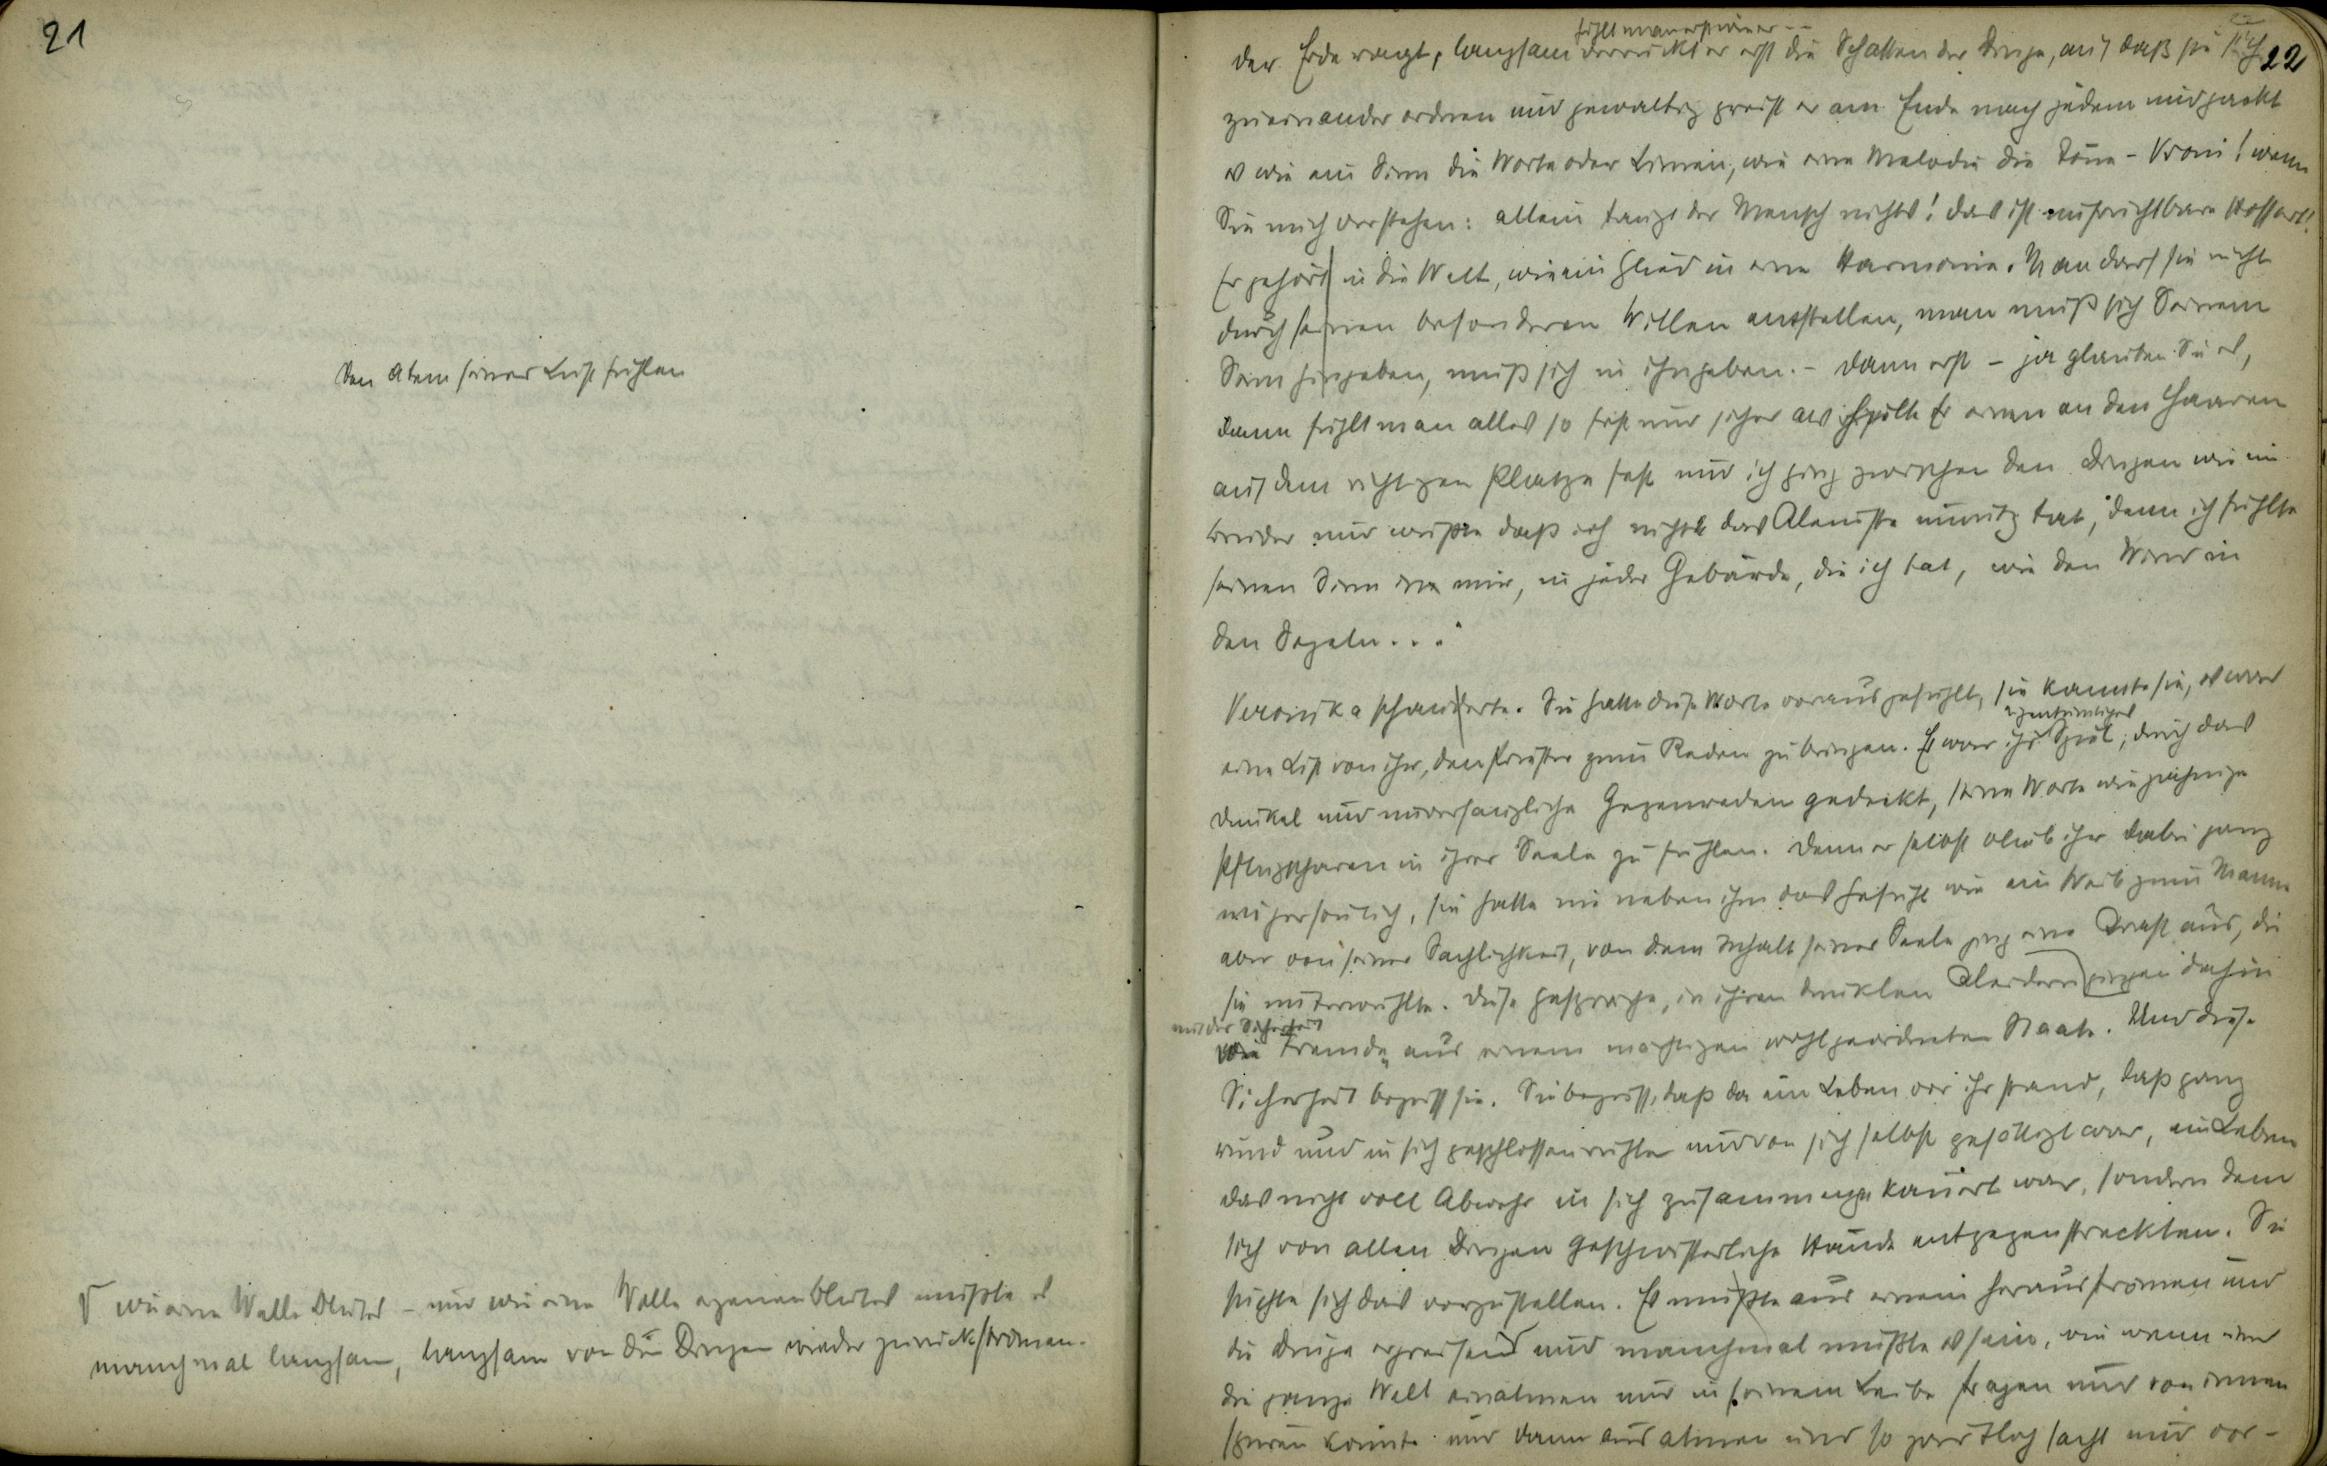 21
Den Atem seiner Lust fühlen
wie eine Welle Blutes – und wie eine Welle eigenen Blutes mußte es
manchmal langsam, langsam von den Dingen wieder zurückströmen.
22
fühlt man
der Erde ragt, langsam verrückt er erst die Schatten der Dinge, auf daß sie sich
zueinander ordnen und gewaltig greift er am Ende nach jedem und packt
es wie ein Sinn die Worte oder Linien, wie eine Melodie die Töne – Vroni! wenn
Sie mich verstehen: allein tanzt der Mensch nicht! das ist unfruchtbare Hoffart!
Er gehört in die Welt, wie ein Glied in eine Harmonie. Man darf sie nicht
durch seinen besonderen Willen entstellen, man muß sich Seinem
Sinn hingeben, muß sich in ihn geben. – Dann erst – ja glauben Sie es,
dann fühlt man alles so fest und sicher als hielte Er einen an den Haaren
auf dem richtigen Platze fest und ich ging zwischen den Dingen wie ein
Bruder und wußte daß ich nicht das Kleinste unnütz tat, denn ich fühlte
seinen Sinn in mir, in jeder Gebärde, die ich tat, wie den Wind in
den Segeln . . ."
Veronika schauderte. Sie hatte diese Worte vorausgefühlt, sie kannte sie, es war
eigentümliches
eine List von ihr, den Priester zum Reden zu bringen. Es war ihr Spiel, durch das
Dunkel und unverfängliche Gegenreden gedeckt, seine Worte wie
Pflugscharen in ihrer Seele zu fühlen. Denn er selbst blieb ihr dabei ganz
unpersönlich, sie hatte nie neben ihm das Gefühl wie ein Weib zum Manne
aber von seiner Sachlichkeit, von dem Inhalt seiner Seele ging eine Kraft aus, die
sie unterwühlte. Diese Gespräche, in ihren dunklen Kleidern gingen dahin
mit der Sicherheit
wie Fremde aus einem mächtigen wohlgeordneten Staate. Und diese
Sicherheit begriff sie. Sie begriff, daß da ein Leben vor ihr stand, daß ganz
rund und in sich geschlossen ruhte und von sich selbst gesättigt war, ein Leben
das nicht voll Abwehr in sich zusammengekauert war, sondern dem
sich von allen Dingen geschwisterliche Hände entgegenstreckten. Sie
suchte sich das vorzustellen. Es mußte aus einem herausströmen und
die Dinge ergreifen und manchmal mußte es sein, wie wenn man
die ganze Welt einatmen und in seinem Leibe tragen und von innen
spüren könnte und dann ausatmen und so zärtlich sacht und vor-